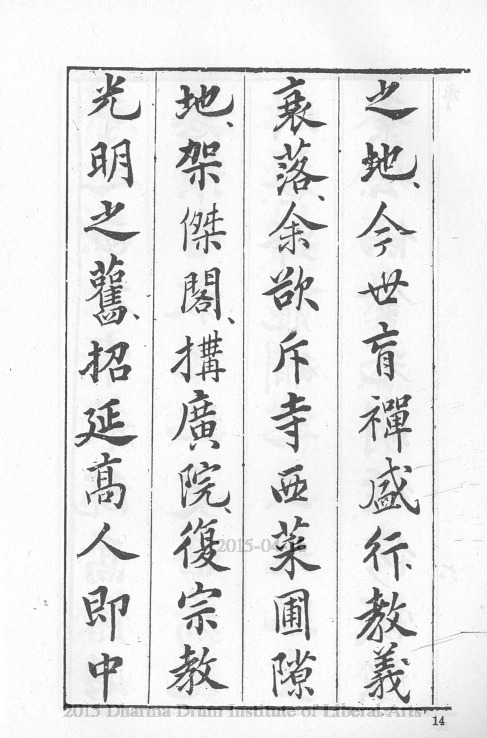 之地、今世盲禪盛行、教義
衰落、余欲斥寺西菜圃隙
地、架傑閣、搆廣院、復宗教
光明之舊、招延高人即中
2015-04
2015 Dharma Drum Institute of Liberal Arts
14